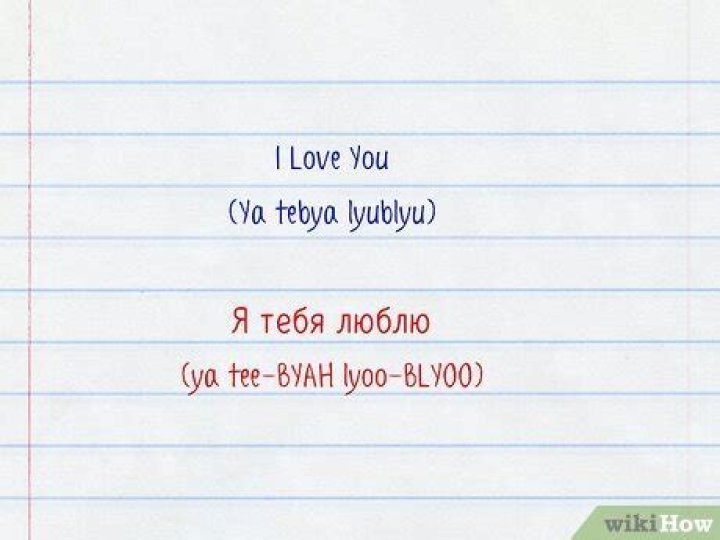 I Love You
(Ya tebya lyublyu)
Я тебя люблю
(ya tee-BYAH lyoo-BLYOO)
wikiHow